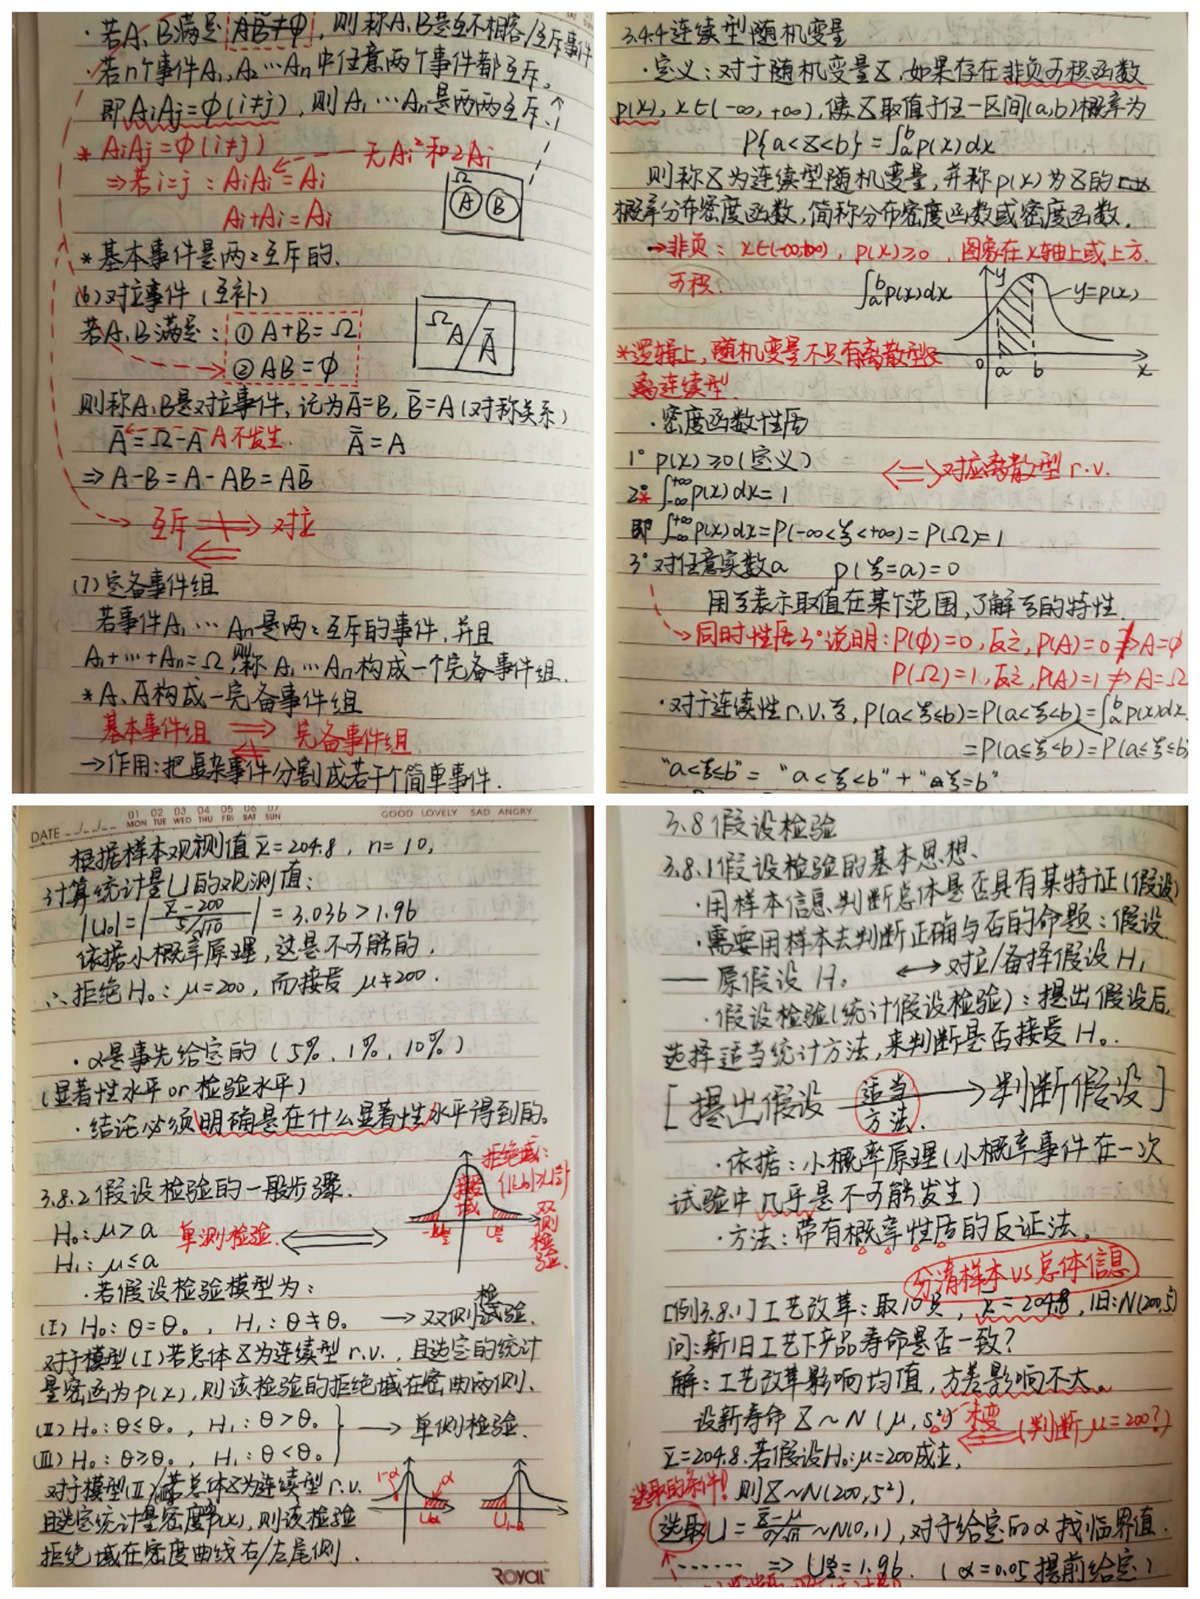 ·若A、B满足 AB≠φ,则称A、B是互不相容/互斥事件
·若n个事件A₁,A₂…An中任意两个事件都互斥,
即AiAj=φ(i≠j),则A₁…An是两两互斥.
* AiAj=φ(i≠j) 无Ai²和2Ai
⇒若i=j:AiAi=Ai
Ai+Ai=Ai
Ω A B
*基本事件是两two互斥的.
(6)对立事件(互补)
若A、B满足:①A+B=Ω
②AB=φ
Ω A Ā
则称A、B是对立事件,记为Ā=B,B̄=A(对称关系)
Ā=Ω-A A不发生. A̿=A
⇒A-B=A-AB=AB̄
互斥 ⇏ 对立
⇐
(7)完备事件组
若事件A₁…An是两two互斥的事件,并且
A₁+…+An=Ω,则称A₁…An构成一个完备事件组.
*A、Ā构成一完备事件组
基本事件组 ⇒ 完备事件组
→作用:把复杂事件分割成若干个简单事件.
3.4.4连续型随机变量
·定义:对于随机变量X,如果存在非负可积函数
p(x),x∈(-∞,+∞),使X取值于任一区间(a,b)概率为
P{a<X<b}=∫ₐᵇp(x)dx
则称X为连续型随机变量,并称p(x)为X的
概率分布密度函数,简称分布密度函数或密度函数.
→非负:x∈(-∞,+∞),p(x)≥0,图象在x轴上或上方.
可积. ∫ₐᵇp(x)dx
y y=p(x)
0 a b x
*逻辑上,随机变量不只有离散型
连续型.
·密度函数性质
1° p(x)≥0(定义) ⇔对应离散型r.v.
2° ∫₋∞⁺∞p(x)dx=1
即 ∫₋∞⁺∞p(x)dx=P(-∞<ξ<+∞)=P(Ω)=1
3° 对任意实数a P(ξ=a)=0
用ξ表示取值在某个范围,了解ξ的特性
→同时性质3°说明:P(φ)=0,反之,P(A)=0⇏A=φ
P(Ω)=1,反之,P(A)=1⇏A=Ω
·对于连续性r.v.ξ,P(a<ξ≤b)=P(a<ξ<b)=∫ₐᵇp(x)dx
=P(a≤ξ<b)=P(a≤ξ≤b)
"a<ξ≤b"="a<ξ<b"+"ξ=b"
DATE 01 02 03 04 05 06 07
MON TUE WED THU FRI SAT SUN
GOOD LOVELY SAD ANGRY
根据样本观测值x̄=204.8,n=10,
计算统计量U的观测值:
|U₀|=|(x̄-200)/(5/√10)|=3.036>1.96
依据小概率原理,这是不可能的.
∴拒绝H₀:μ=200,而接受μ≠200.
·α是事先给定的(5%、1%、10%)
(显著性水平or检验水平)
·结论必须明确是在什么显著性水平得到的。
3.8.2假设检验的一般步骤.
H₀:μ>a 单测检验. ⇔ 双侧检验.
H₁:μ≤a
接受域
拒绝域:
·若假设检验模型为:
(I) H₀:θ=θ₀,H₁:θ≠θ₀ →双侧检验.
对于模型(I)若总体X为连续型r.v.,且选定的统计
量密函为p(x),则该检验的拒绝域在密曲两侧.
(II) H₀:θ≤θ₀,H₁:θ>θ₀
→单侧检验.
(III) H₀:θ≥θ₀,H₁:θ<θ₀
对于模型(II)若总体X为连续型r.v.
且选定统计量密度p(x),则该检验
拒绝域在密度曲线右/左尾侧.
1-α α Uα U₁₋α
ROYAL
3.8假设检验
3.8.1假设检验的基本思想、
·用样本信息判断总体是否具有某特证(假设)
·需要用样本去判断正确与否的命题:假设
——原假设H₀ ↔对立/备择假设H₁
·假设检验(统计假设检验):提出假设后,
选择适当统计方法,来判断是否接受H₀.
[提出假设 适当方法. →判断假设]
·依据:小概率原理(小概率事件在一次
试验中几乎是不可能发生)
·方法:带有概率性质的反证法.
分清样本VS总体信息
[例3.8.1]工艺改革:取10只,x̄=204.8,旧:N(200,5²)
问:新旧工艺下产品寿命是否一致?
解:工艺改革影响均值,方差影响不大。
设新寿命X~N(μ,5²) 未变 (判断μ=200?)
x̄=204.8.若假设H₀:μ=200成立,
选取的条件! 则X~N(200,5²),
选取U=(x̄-μ)/(σ/√n)~N(0,1),对于给定的α找临界值.
……⇒Uα/2=1.96.(α=0.05提前给定)